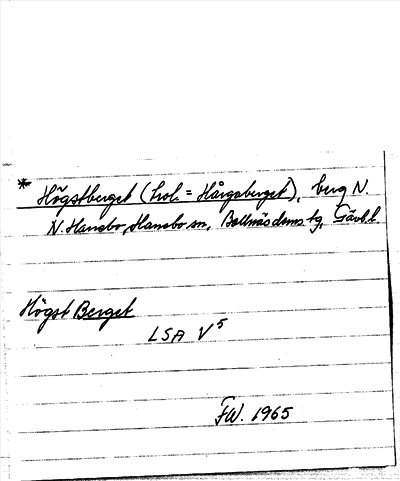 * Högstberget (trol. = Hårgaberget), berg N.
N. Hanebo, Hanebo sn, Bollnäs doms tg, Gävl.l.
Högst Berget
LSA V⁵
FW. 1965